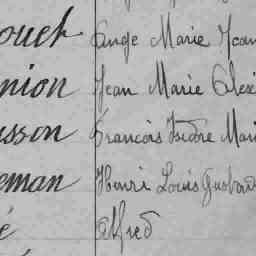 ouet Ange Marie Jean
nion Jean Marie Alexi
usson Francois Isidore Mari
eman Henri Louis Gustave
é Alfred